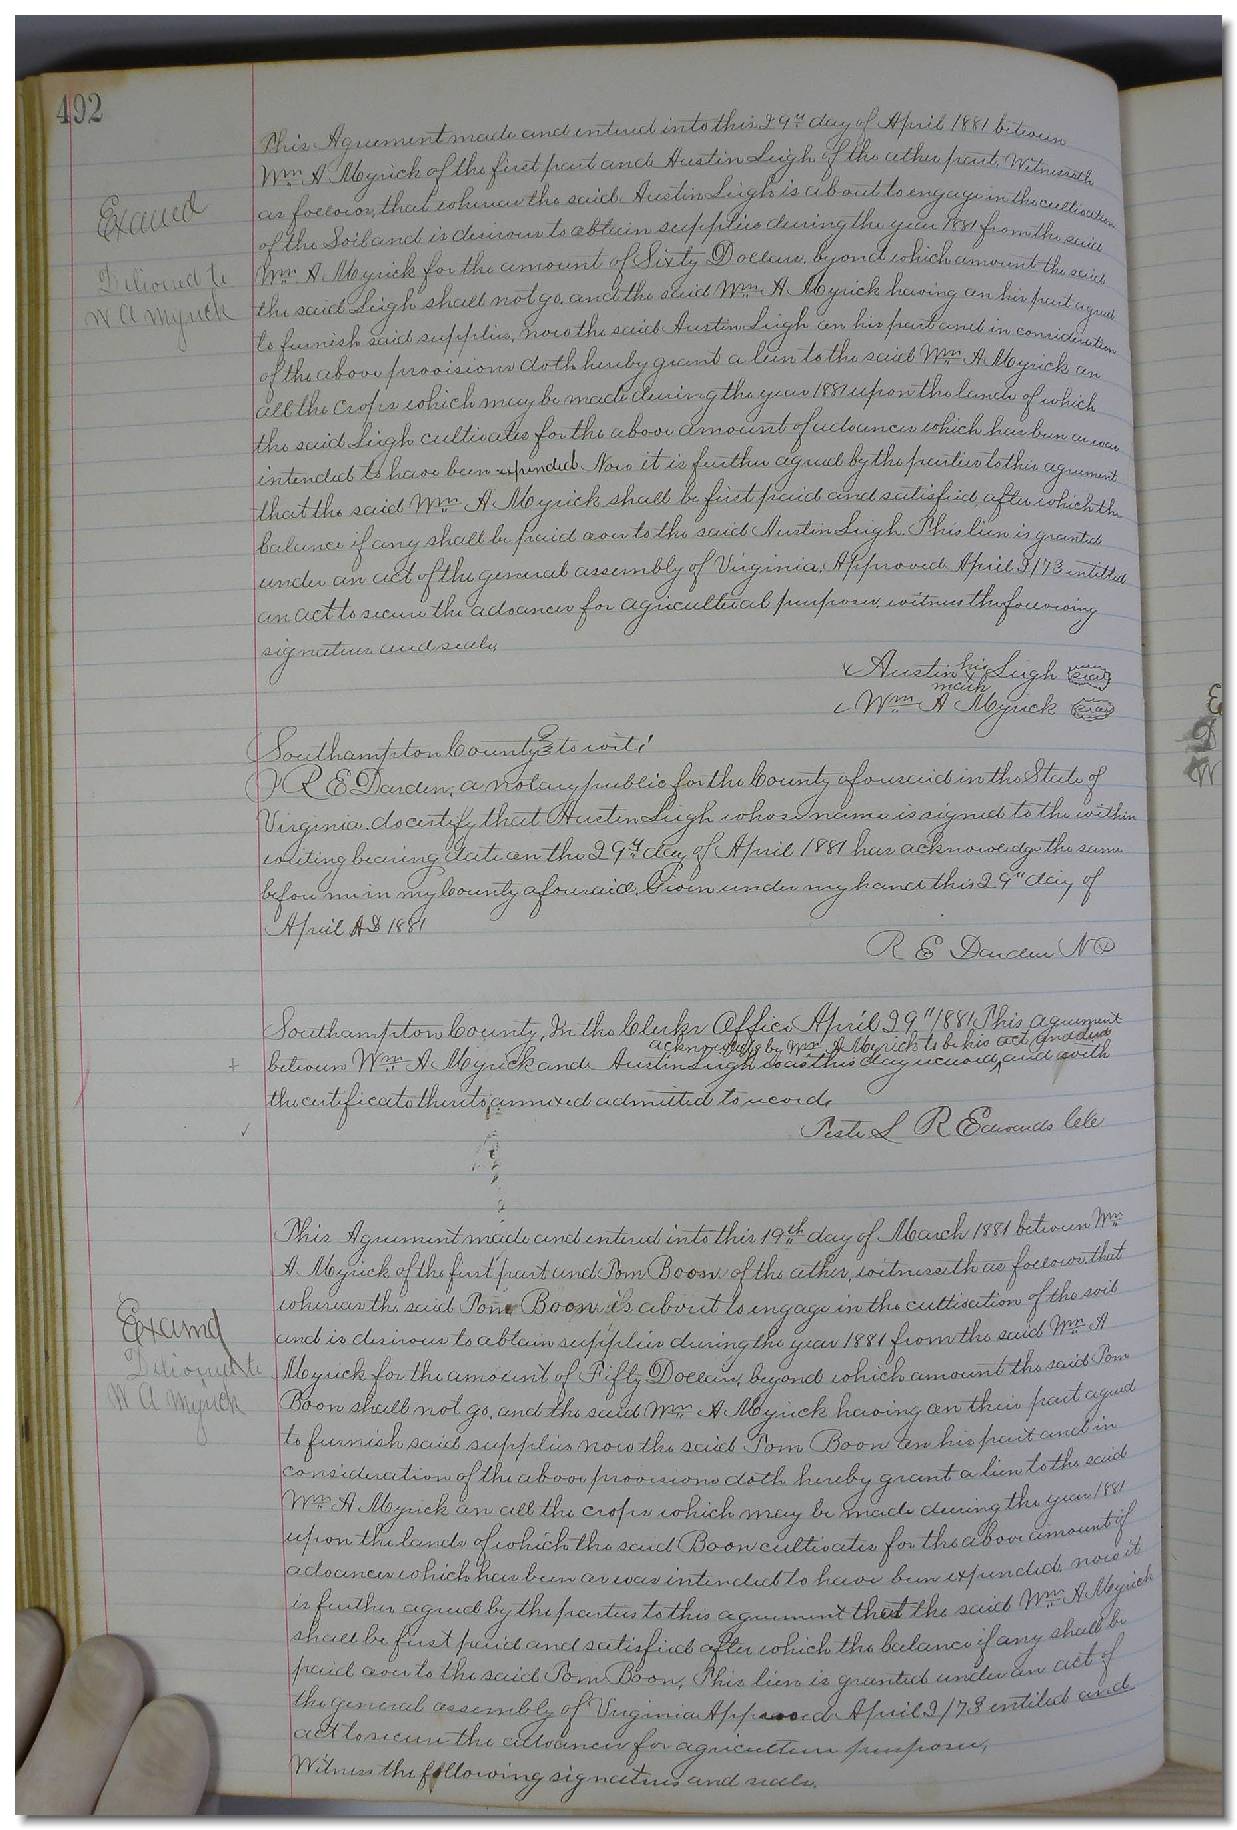 492
This Agreement made and entered into this 29th day of April 1881 between
Wm A Myrick of the first part and Austin Leigh of the other part, Witnesseth
as follows, that whereas the said Austin Leigh is about to engage in the cultivation
of the Soil and is desirous to obtain supplies during the year 1881 from the said
Wm A Myrick for the amount of Sixty Dollars, beyond which amount the said
the said Leigh shall not go, and the said Wm A Myrick having on his part agreed
to furnish said supplies, now the said Austin Leigh on his part and in consideration
of the above provisions doth hereby grant a lien to the said Wm A Myrick on
all the crops which may be made during the year 1881 upon the lands of which
the said Leigh cultivates for the above amount of advances which has been or was
intended to have been expended. Now it is further agreed by the parties to this agreement
that the said Wm A Myrick shall be first paid and satisfied, after which the
balance if any shall be paid over to the said Austin Leigh. This lien is granted
under an act of the general assembly of Virginia, Approved April 2/73 entitled
an act to secure the advances for agricultural purposes, witness the following
signatures and seals,
Exained
Delivered to
W A Myrick
x Austin his x mark Leigh seal
Wm A Myrick seal
Southampton County to wit;
I R E Darden, a notary public for the County aforesaid in the State of
Virginia do certify that Austin Leigh whose name is signed to the within
writing bearing date on the 29th day of April 1881 has acknowledge the same
before me in my County aforesaid, Given under my hand this 29" day of
April AD 1881
R E Darden NP
Southampton County, In the Clerks Office April 29" 1881 This agreement
acknowledg by Wm A Myrick to be his act and deed
between Wm A Myrick and Austin Leigh was this day received, and with
the certificate thereto annexed admitted to record,
Teste L R Edwards Clk
This Agreement made and entered into this 19th day of March 1881 between Wm
A Myrick of the first part and Tom Boon of the other, witnesseth as follows, that
whereas the said Tom Boon is about to engage in the cultivation of the soil
and is desirous to obtain supplies during the year 1881 from the said Wm A
Myrick for the amount of Fifty Dollars, beyond which amount the said Tom
Boon shall not go, and the said Wm A Myrick having on their part agreed
to furnish said supplies now the said Tom Boon on his part and in
consideration of the above provisions doth hereby grant a lien to the said
Wm A Myrick on all the crops which may be made during the year 1881
upon the lands of which the said Boon cultivates for the above amount of
advances which has been or was intended to have been expended, now it
is further agreed by the parties to this agreement that the said Wm A Myrick
shall be first paid and satisfied after which the balance if any shall be
paid over to the said Tom Boon, This lien is granted under an act of
the general assembly of Virginia Approved April 2/73 entitled and
act to secure the advances for agriculture purposes,
Witness the following signatures and seals.
Examd
Delivered to
W A Myrick